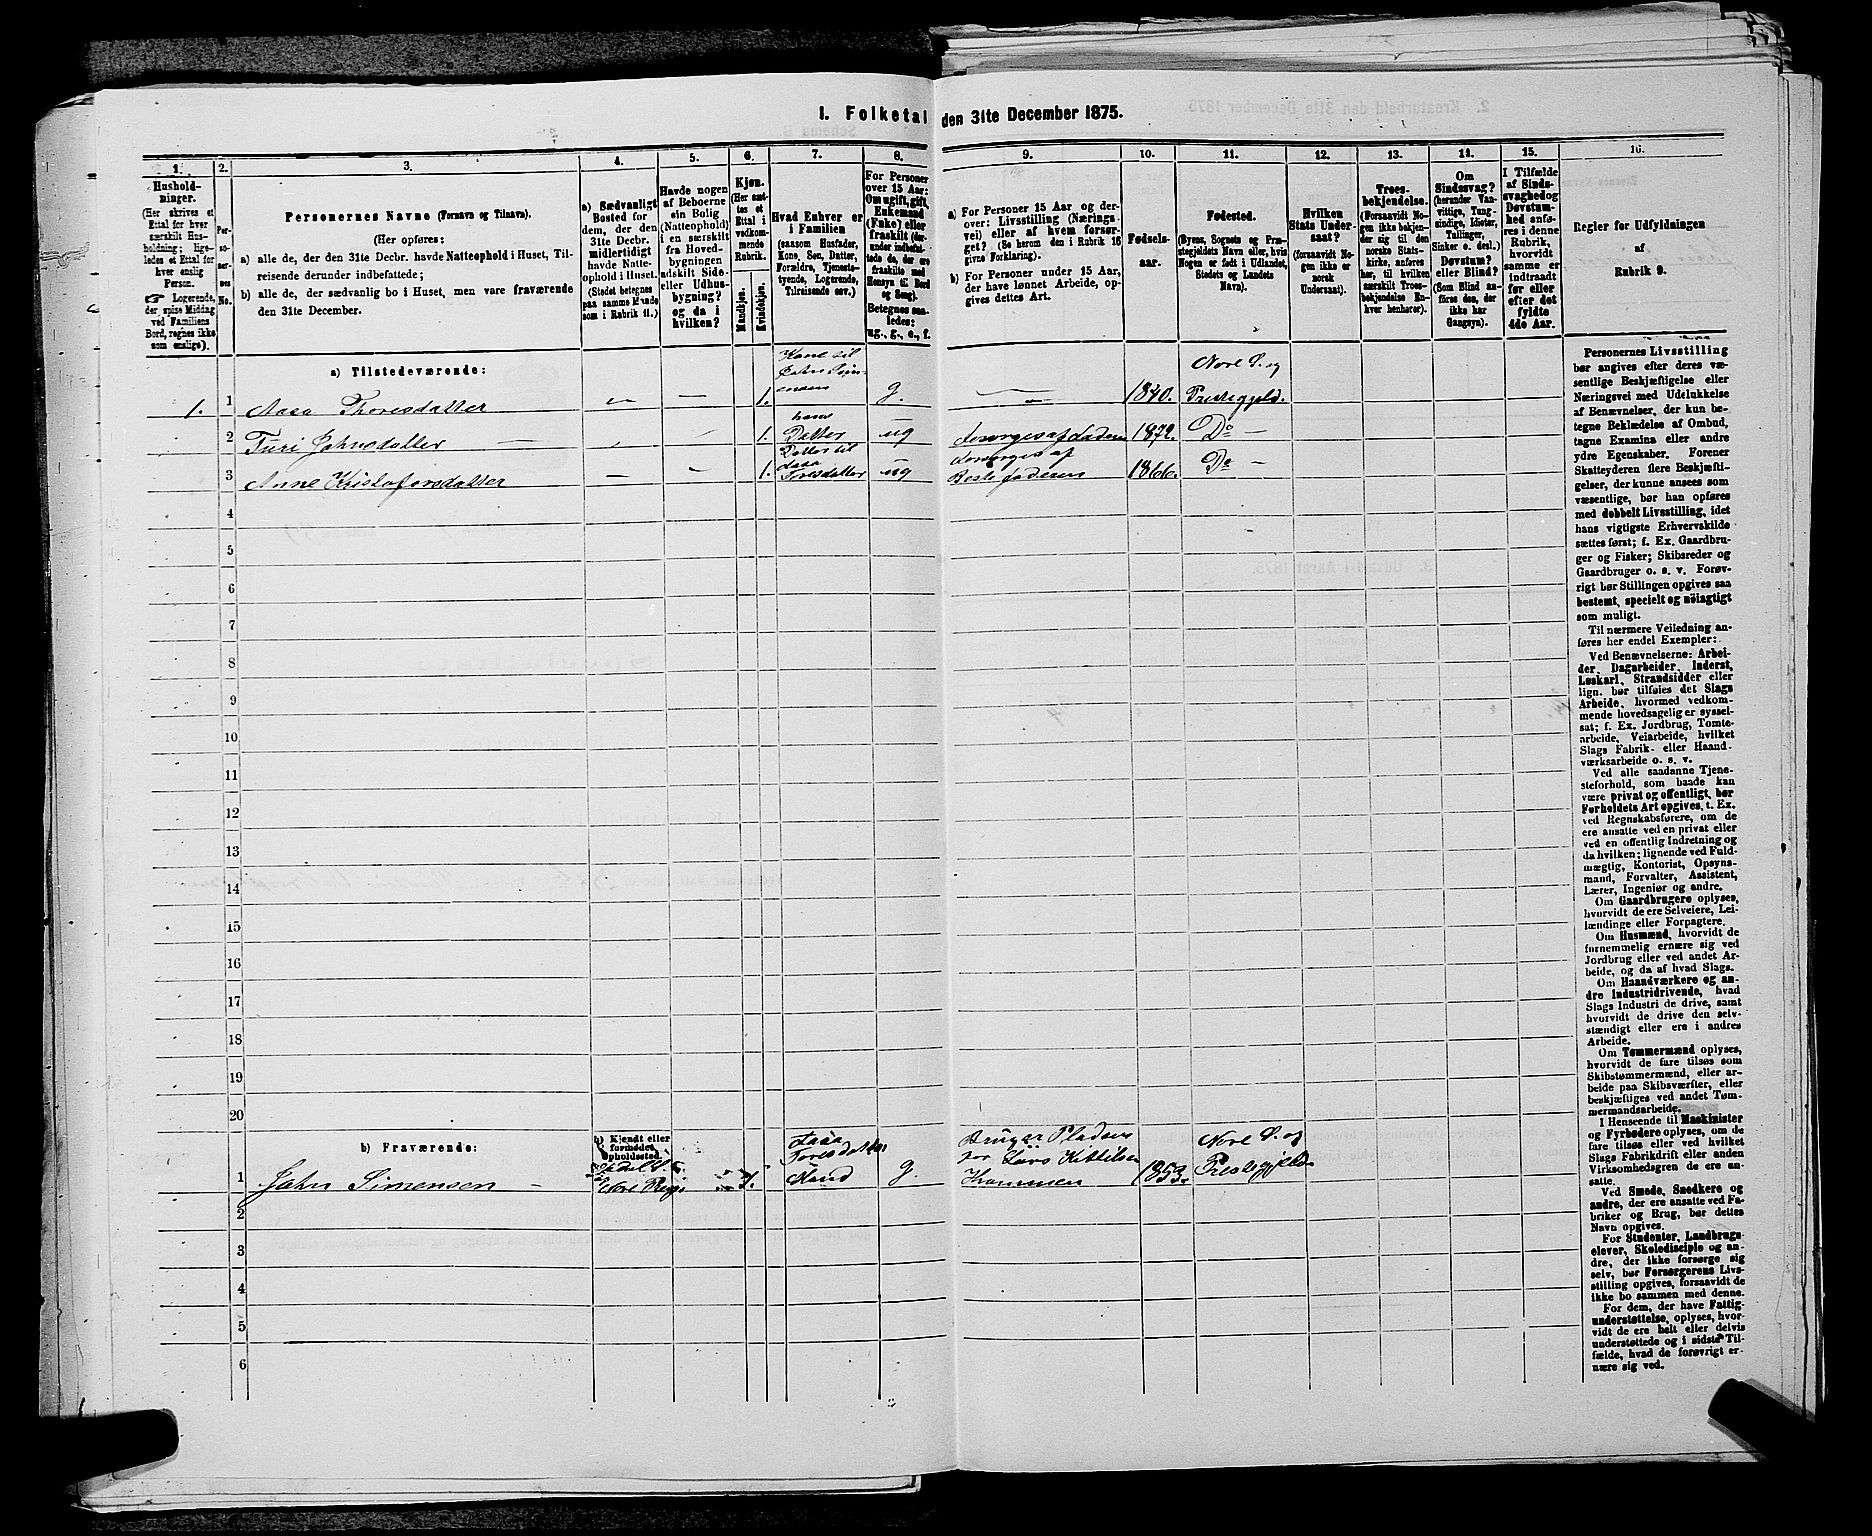 1. Folketal den 31te December 1875.
1.
Hushold-
ninger.
(Her skrives et
Ettal for hver
særskilt Hus-
holdning; lige-
ledes et Ettal for
hver enslig
Person.
Logerende,
der spise Middag
ved Familiens
Bord, regnes ikke
som enslige).
2.
Per-
so-
ner-
nes
No.
3.
Personernes Navne (Fornavn og Tilnavn).
(Her opføres:
a) alle de, der den 31te Decbr. havde Natteophold i Huset, Til-
reisende derunder indbefattede;
b) alle de, der sædvanlig bo i Huset, men vare fraværende
den 31te December.
4.
a) Sædvanligt
Bosted for
dem, der den
31te Decbr.
midlertidigt
havde Natte-
ophold i Huset.
(Stedet betegnes
paa samme Maade
som i Rubrik 11.)
5.
Havde nogen
af Beboerne
sin Bolig
(Natteophold)
i en særskilt
fra Hoved-
bygningen
adskilt Side-
eller Udhus-
bygning?
og da i
hvilken?
6.
Kjøn.
(Her sæt-
tes et
Ettal i
vedkom-
mende
Rubrik.
Mandkjøn.
Kvindekjøn.
7.
Hvad Enhver er
i Familien
(saasom Husfader,
Kone, Søn, Datter,
Forældre, Tjeneste-
tyende, Logerende,
Tilreisende osv.)
8.
For Personer
over 15 Aar:
Om ugift, gift,
Enkemand
(Enke) eller
fraskilt (der-
under indbefat-
tede de, der ere
fraskilte med
Hensyn til Bord
og Seng).
Betegnes saa-
ledes:
ug., g., e., f.
9.
a) For Personer 15 Aar og der-
over: Livsstilling (Nærings-
vei) eller af hvem forsør-
get? (Se herom den i Rubrik 16
givne Forklaring).
b) For Personer under 15 Aar,
der have lønnet Arbeide, op-
gives dettes Art.
10.
Fødsels-
aar.
11.
Fødested.
(Byens, Sognets og Præ-
stegjeldets Navn eller, hvis
Nogen er født i Udlandet,
Stedets og Landets
Navn).
12.
Hvilken
Stats Under-
saat?
(forsaavidt No-
gen ikke er
norsk
Undersaat).
13.
Troes-
bekjendelse.
(Forsaavidt No-
gen ikke bekjen-
der sig til den
norske Stats-
kirke, anføres
her, til hvilken
særskilt Troes-
bekjendelse En-
hver henhører).
14.
Om
Sindssvag?
(herunder Van-
vittige, Tung-
sindige, Idioter,
Tullinger,
Sinker o. desl.)
Døvstum?
eller Blind?
(Som Blind an-
føres den, der
ikke har
Gangsyn).
15.
I Tilfælde
af Sinds-
svaghed og
Døvstum-
hed anfø-
res i denne
Rubrik,
hvorvidt
samme er
indtraadt
før eller
efter det
fyldte
4de Aar.
16.
Regler for Udfyldningen
af
Rubrik 9.
a) Tilstedeværende:
1. 1 Aasa Thoresdatter — — 1. Kone til John Sim- ensen g. — 1840. Nore S. og Præstegjeld.
2 Turi Johnsdatter — — — 1. hans Datter ug forsørges af Faderen 1872. Do —
3 Anne Kristofersdatter — — 1. Datter til Aasa Toresdatter ug forsørges af Bestefaderen 1866. Do —
4
5
6
7
8
9
10
11
12
13
14
15
16
17
18
19
20
b) Fraværende:
b) Kjendt eller
formodet
Opholdssted.
1 John Simensen — 1. Aasa Toresdatters Mand g. Bruger Pladsen for Lars Kittilsen 1853. Nore S. og Præstegjeld
2
3
4
5
6
Personernes Livsstilling
bør angives efter deres væ-
sentlige Beskjæftigelse eller
Næringsvei med Udelukkelse
af Benævnelser, der kun be-
tegne Beklædelse af Ombud,
tagne Examina eller andre
ydre Egenskaber. Forener
Skatteyderen flere Beskjæfti-
gelser, der kunne ansees som
væsentlige, bør han opføres
med dobbelt Livsstilling, idet
hans vigtigste Erhvervskilde
sættes først; f. Ex. Gaardbru-
ger og Fisker; Skibsreder og
Gaardbruger o. s. v. Forøv-
rigt bør Stillingen opgives saa
bestemt, specielt og nøiagtigt
som muligt.
Til nærmere Veiledning an-
føres her endel Exempler:
Ved Benævnelserne: Arbei-
der, Dagarbeider, Inderst,
Løskarl, Strandsidder eller
lign. bør tilføies det Slags
Arbeide, hvormed vedkom-
mende hovedsagelig er syssel-
sat; f. Ex. Jordbrug, Tomte-
arbeide, Veiarbeide, hvilket
Slags Fabrik- eller Haand-
værksarbeide o. s. v.
Ved alle saadanne Tjene-
steforhold, som baade kan
være privat og offentligt, bør
Forholdets Art opgives, t. Ex.
ved Regnskabsførere, om de
ere ansatte ved en privat eller
ved en offentlig Indretning og
da hvilken; lignende ved Fuld-
mægtig, Kontorist, Opsyns-
mand, Forvalter, Assistent,
Lærer, Ingeniør og andre.
Om Gaardbrugere oplyses,
hvorvidt de ere Selveiere, Lei-
lændinge eller Forpagtere.
Om Husmænd, hvorvidt de
fornemmelig ernære sig ved
Jordbrug eller ved andet Ar-
beide, og da af hvad Slags.
Om Haandværkere og an-
dre Industridrivende, hvad
Slags Industri de drive, samt
hvorvidt de drive den selv-
stændigt eller ere i andres
Arbeide.
Om Tømmermænd oplyses,
hvorvidt de fare tilsøs som
Skibstømmermænd, eller ar-
beide paa Skibsværfter, eller
beskjæftiges ved andet Tøm-
mermandsarbeide.
I Henseende til Maskinister
og Fyrbødere oplyses, om de
fare tilsøs eller ved hvilket
Slags Fabrikdrift eller anden
Virksomhedsgren de ere an-
satte.
Ved Smede, Snedkere og
andre, der ere ansatte ved Fa-
briker og Brug, bør dettes
Navn opgives.
For Studenter, Landbrugs-
elever, Skoledisciple og an-
dre, der ikke forsørge sig
selv, bør Forsørgerens Livs-
stilling opgives, forsaavidt de
ikke bo sammen med denne.
For dem, der have Fattig-
understøttelse, oplyses, hvor-
vidt de ere helt eller delvis
understøttede og i sidste Til-
fælde, hvad de forøvrigt er-
nære sig ved.